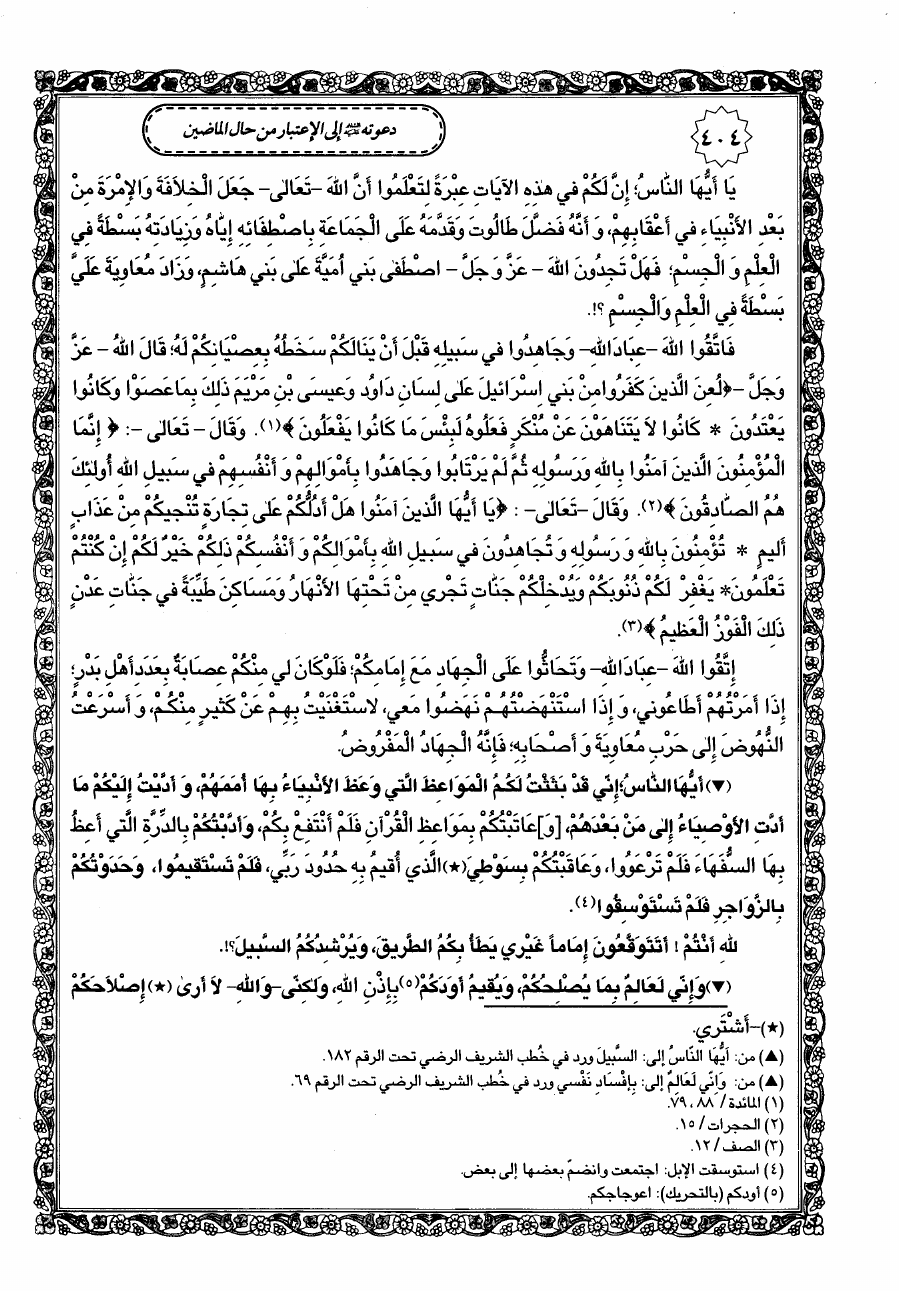 ٤٠٤
دعوته عليه السلام إلى الإعتبار من حال الماضين
يَا أَيُّهَا النَّاسُ؛ إِنَّ لَكُمْ في هٰذِهِ الآيَاتِ عِبْرَةً لِتَعْلَمُوا أَنَّ اللهَ -تَعَالىٰ- جَعَلَ الْخِلاَفَةَ وَالإِمْرَةَ مِنْ
بَعْدِ الأَنْبِيَاءِ في أَعْقَابِهِمْ، وَ أَنَّهُ فَضَّلَ طَالُوتَ وَقَدَّمَهُ عَلَى الْجَمَاعَةِ بِاصْطِفَائِهِ إِيَّاهُ وَزِيَادَتِهُ بَسْطَةً فِي
الْعِلْمِ وَ الْجِسْمِ؛ فَهَلْ تَجِدُونَ اللهَ - عَزَّ وَ جَلَّ - اصْطَفٰى بَني أُمَيَّةَ عَلىٰ بَني هَاشِمٍ، وَزَادَ مُعَاوِيَةَ عَلَيَّ
بَسْطَةً فِي الْعِلْمِ وَالْجِسْمِ ؟!.
فَاتَّقُوا اللهَ -عِبَادَاللهِ- وَجَاهِدُوا في سَبيلِهِ قَبْلَ أَنْ يَنَالَكُمْ سَخَطُهُ بِعِصْيَانِكُمْ لَهُ؛ قَالَ اللهُ - عَزَّ
وَجَلَّ -﴿لُعِنَ الَّذينَ كَفَرُوا مِنْ بَني اِسْرَائيلَ عَلىٰ لِسَانِ دَاوُدَ وَعيسَى بْنِ مَرْيَمَ ذٰلِكَ بِمَا عَصَوْا وَكَانُوا
يَعْتَدُونَ * كَانُوا لاَ يَتَنَاهَوْنَ عَنْ مُنْكَرٍ فَعَلُوهُ لَبِئْسَ مَا كَانُوا يَفْعَلُونَ ﴾(١). وَقَالَ - تَعَالى -: ﴿ إِنَّمَا
الْمُؤْمِنُونَ الَّذينَ آمَنُوا بِاللهِ وَرَسُولِهِ ثُمَّ لَمْ يَرْتَابُوا وَجَاهَدُوا بِأَمْوَالِهِمْ وَ أَنْفُسِهِمْ في سَبيلِ اللهِ أُولٰئِكَ
هُمُ الصَّادِقُونَ ﴾(٢). وَقَالَ -تَعَالىٰ- : ﴿يَا أَيُّهَا الَّذينَ آمَنُوا هَلْ أَدُلُّكُمْ عَلىٰ تِجَارَةٍ تُنْجيكُمْ مِنْ عَذَابٍ
أَليمٍ * تُؤْمِنُونَ بِاللهِ وَ رَسُولِهِ وَ تُجَاهِدُونَ في سَبيلِ اللهِ بِأَمْوَالِكُمْ وَ أَنْفُسِكُمْ ذٰلِكُمْ خَيْرٌ لَكُمْ إِنْ كُنْتُمْ
تَعْلَمُونَ* يَغْفِرْ لَكُمْ ذُنُوبَكُمْ وَيُدْخِلْكُمْ جَنَّاتٍ تَجْري مِنْ تَحْتِهَا الأَنْهَارُ وَمَسَاكِنَ طَيِّبَةً في جَنَّاتِ عَدْنٍ
ذٰلِكَ الْفَوْزُ الْعَظيمُ ﴾(٣).
إِتَّقُوا اللهَ -عِبَادَاللهِ- وَتَحَاثُّوا عَلَى الْجِهَادِ مَعَ إِمَامِكُمْ؛ فَلَوْكَانَ لي مِنْكُمْ عِصَابَةٌ بِعَدَدِ أَهْلِ بَدْرٍ؛
إِذَا أَمَرْتُهُمْ أَطَاعُوني، وَ إِذَا اسْتَنْهَضْتُهُمْ نَهَضُوا مَعي، لاَسْتَغْنَيْتُ بِهِمْ عَنْ كَثيرٍ مِنْكُمْ، وَ أَسْرَعْتُ
النُّهُوضَ إِلى حَرْبِ مُعَاوِيَةَ وَ أَصْحَابِهِ؛ فَإِنَّهُ الْجِهَادُ الْمَفْرُوضُ.
(▼) أَيُّهَا النَّاسُ؛ إِنّي قَدْ بَثَثْتُ لَكُمُ الْمَوَاعِظَ الَّتي وَعَظَ الأَنْبِيَاءُ بِهَا أُمَمَهُمْ، وَ أَدَّيْتُ إِلَيْكُمْ مَا
أَدَّتِ الأَوْصِيَاءُ إِلى مَنْ بَعْدَهُمْ، [وَ] عَاتَبْتُكُمْ بِمَوَاعِظِ الْقُرْآنِ فَلَمْ أَنْتَفِعْ بِكُمْ، وَأَدَّبْتُكُمْ بِالدِّرَّةِ الَّتي أَعِظُ
بِهَا السُّفَهَاءَ فَلَمْ تَرْعَوُوا، وَعَاقَبْتُكُمْ بِسَوْطِيَ(★) الَّذي أُقيمُ بِهِ حُدُودَ رَبّي، فَلَمْ تَسْتَقيمُوا، وَحَدَوْتُكُمْ
بِالزَّوَاجِرِ فَلَمْ تَسْتَوْسِقُوا(٤).
لِلهِ أَنْتُمْ ! أَتَتَوَقَّعُونَ إِمَاماً غَيْري يَطَأُ بِكُمُ الطَّريقَ، وَيُرْشِدُكُمُ السَّبيلَ؟!.
(▼) وَإِنّي لَعَالِمٌ بِمَا يُصْلِحُكُمْ، وَيُقيمُ أَوَدَكُمْ(٥) بِإِذْنِ اللهِ، وَلٰكِنّى-وَاللهِ- لاَ أَرىٰ (★) إِصْلاَحَكُمْ
(★)-أَشْتَري.
(▲) من: أَيُّهَا النَّاسُ إلى: السَّبيلَ ورد في خُطب الشريف الرضي تحت الرقم ١٨٢.
(▲) من: وَإنّي لَعَالِمٌ إلى: بِإفْسَادِ نَفْسي ورد في خُطب الشريف الرضي تحت الرقم ٦٩.
(١) المائدة / ٨٨، ٧٩.
(٢) الحجرات / ١٥.
(٣) الصف / ١٢.
(٤) استوسقت الإبل: اجتمعت وانضمّ بعضها إلى بعض.
(٥) أودكم (بالتحريك): اعوجاجكم.